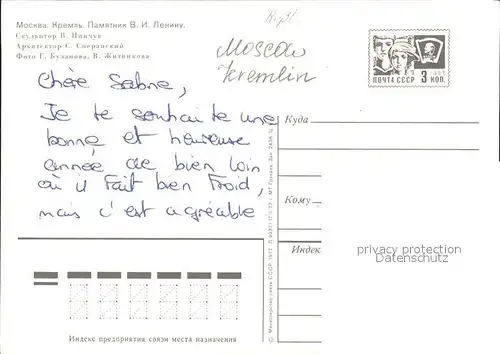 Москва. Кремль. Памятник В. И. Ленину.
Скульптор В. Пинчук
Архитектор С. Сперанский
Фото Г. Бузанова, В. Житникова
Moscow
Kremlin
ПОЧТА СССР 3 КОП.
Chere Sabine,
Je te souhaite une
bonne et heureuse
année de bien loin
où il fait bien froid,
mais c'est agréable
Куда
Кому
Индекс
privacy protection
Datenschutz
© Министерство связи СССР. 1977.
Индекс предприятия связи места назначения